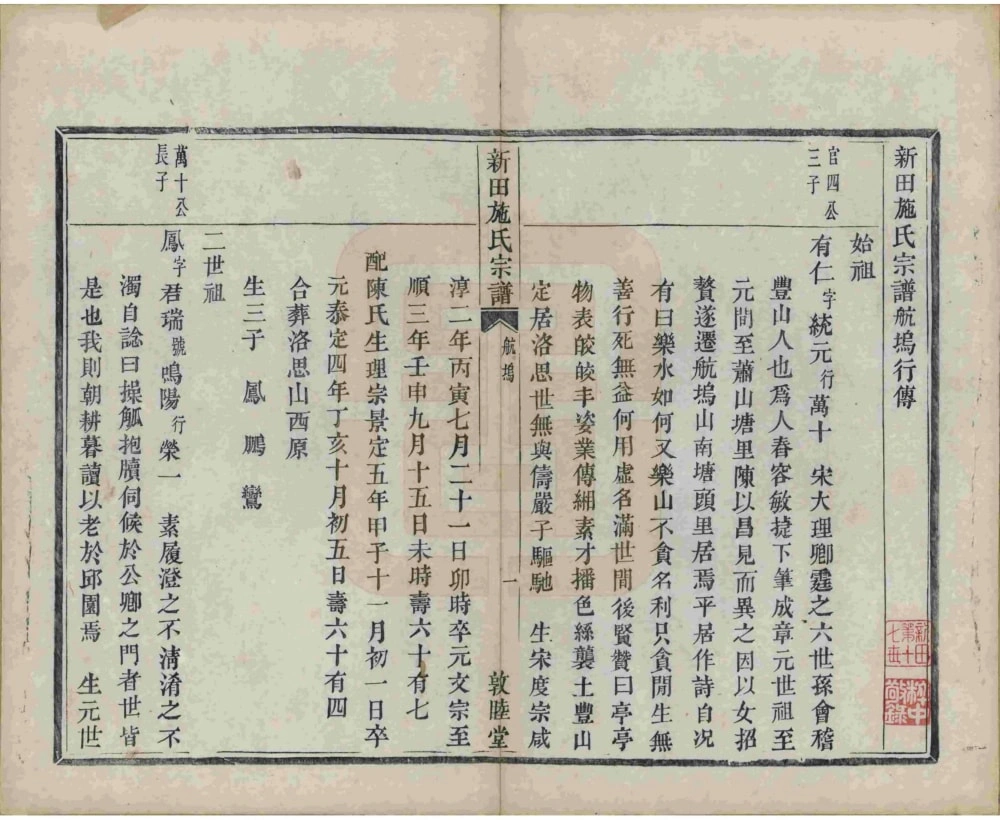 新田施氏宗譜航塢行傳
始祖
官四公
三子
有仁字統元行萬十 宋大理卿霆之六世孫會稽
豐山人也爲人春容敏捷下筆成章元世祖至
元間至蕭山塘里陳以昌見而異之因以女招
贅遂遷航塢山南塘頭里居焉平居作詩自况
有曰樂水如何又樂山不貪名利只貪閒生無
善行死無益何用虛名滿世間後賢贊曰亭亭
物表皎皎丰姿業傳緗素才播色絲襲土豐山
定居洛思世無與儔嚴子驅馳 生宋度宗咸
新田施氏宗譜 航塢 一 敦睦堂
淳二年丙寅七月二十一日卯時卒元文宗至
順三年壬申九月十五日未時壽六十有七
配陳氏生理宗景定五年甲子十一月初一日卒
元泰定四年丁亥十月初五日壽六十有四
合葬洛思山西原
生三子 鳳 鵬 鸞
二世祖
萬十公
長子
鳳字君瑞號鳴陽行榮一 素履澄之不清淆之不
濁自諗曰操觚抱牘伺候於公卿之門者世皆
是也我則朝耕暮讀以老於邱園焉 生元世
新田
第十
七世